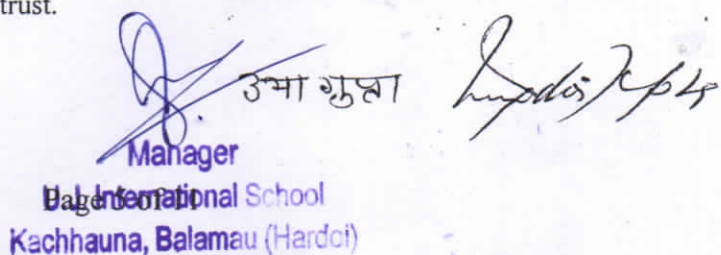 trust.
उमा गुप्ता
Manager
U.J. International School
Page 5 of 11
Kachhauna, Balamau (Hardoi)